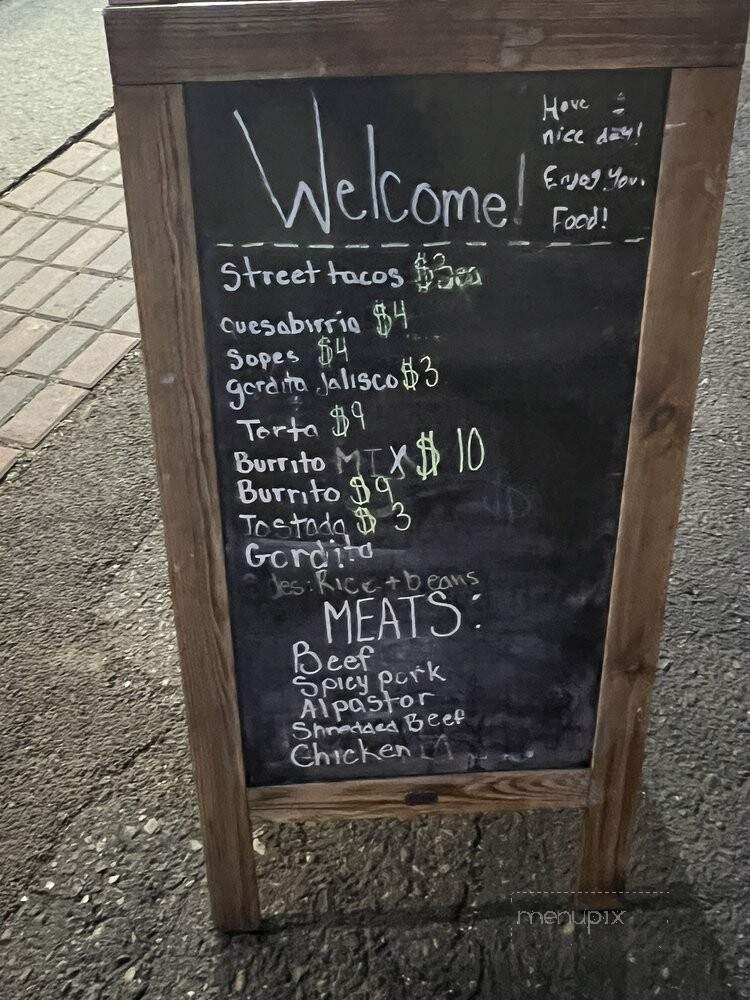 Welcome!
Have a
nice day!
Enjoy Your
Food!
Street tacos $3 ea
quesabirria $4
Sopes $4
gordita Jalisco $3
Torta $9
Burrito MIX $10
Burrito $9
Tostada $3
Gordita
Rice + beans
MEATS:
Beef
Spicy pork
Alpastor
Shredded Beef
Chicken
menupix